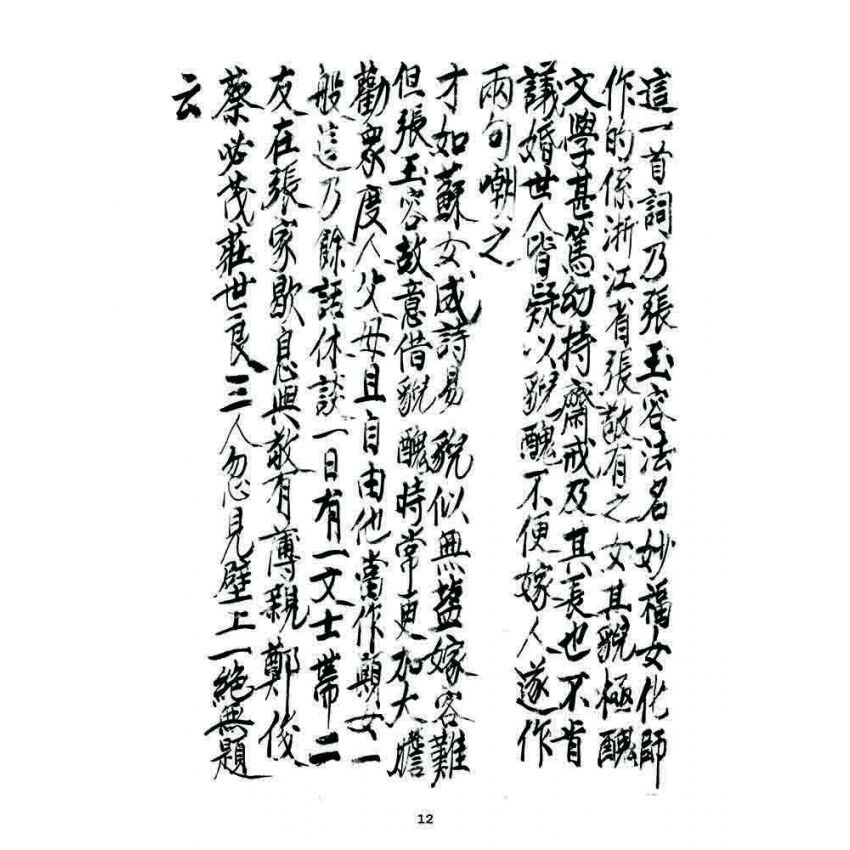 這一首詞乃張玉容法名妙福女化師
作的係浙江省張敬有之女其貌極醜
文學甚篤幼持齋戒及其長也不肯
議婚世人皆疑以貌醜不便嫁人遂作
兩句嘲之
才如蘇女成詩易 貌似無鹽嫁容難
但張玉容故意借貌醜時常更加大膽
勸眾度人父母且自由他當作顛女一
般這乃餘話休談一日有一文士帶二
友在張家歇息與敬有薄親鄭俊
蔡必茂莊世良三人忽見壁上一絕無題
云
12